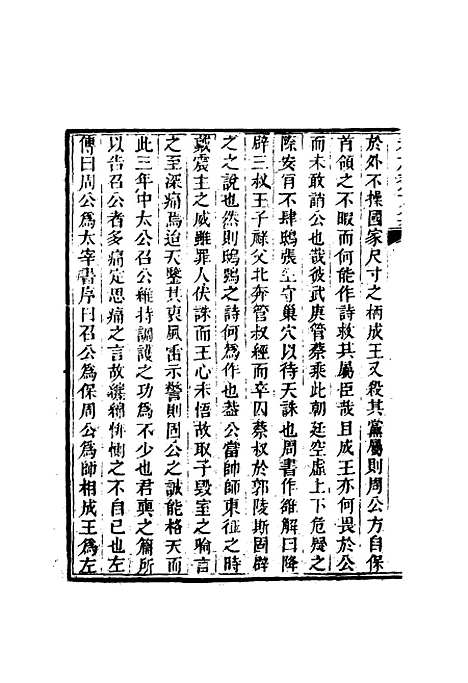 於外不操國家尺寸之柄成王又殺其黨屬則周公方自保
首領之不暇而何能作詩救其屬臣哉且成王亦何畏於公
而未敢誚公也哉彼武庚管蔡乘此朝廷空虛上下危疑之
際安肯不肆鴟張坐守巢穴以待天誅也周書作雒解曰降
辟三叔王子祿父北奔管叔經而卒囚蔡叔於郭陵斯固辟
之之說也然則鴟鴞之詩何爲作也葢公當帥師東征之時
戴震主之威雖罪人伏誅而王心未悟故取子毀室之喻言
之至深痛焉迨天鑒其衷風雷示警則周公之誠能格天而
此三年中太公召公維持調護之功爲不少也君奭之篇所
以告召公者多痛定思痛之言故纏綿悱惻之不自已也左
傳曰周公爲太宰書序曰召公爲保周公爲師相成王爲左